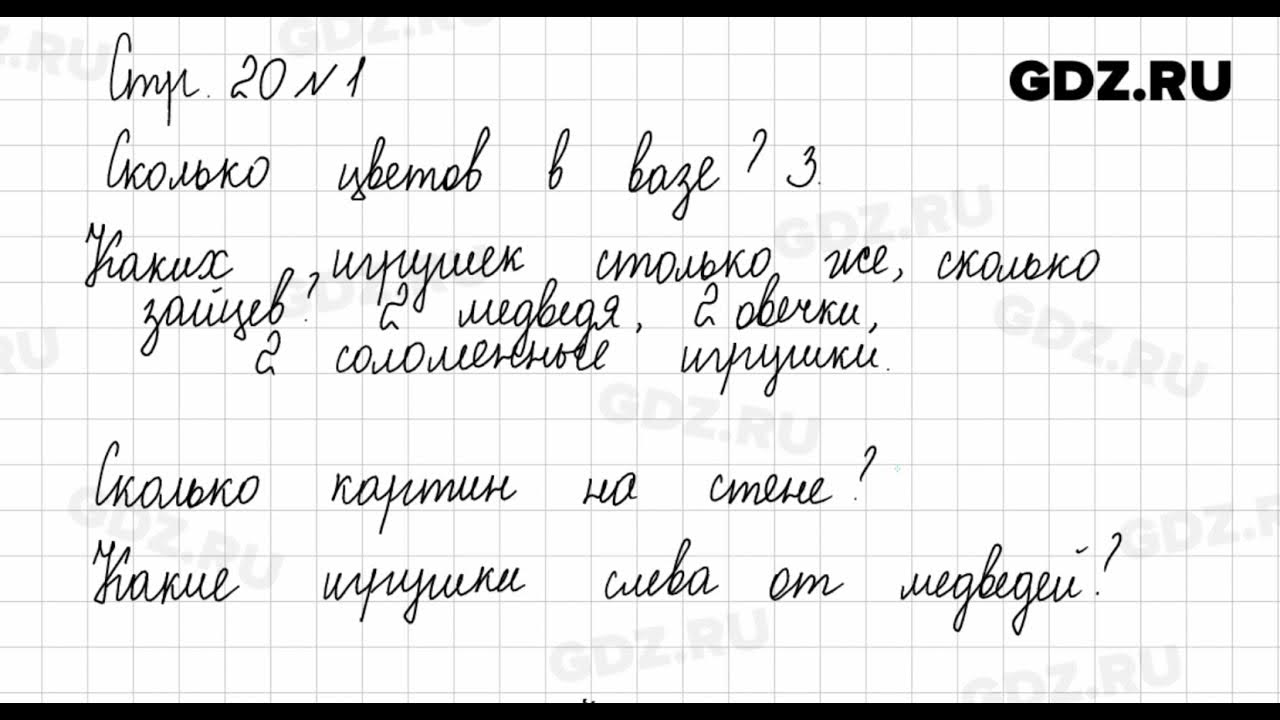 Стр. 20 № 1
GDZ.RU
Сколько цветов в вазе? 3.
Каких игрушек столько же, сколько
зайцев? 2 медведя, 2 овечки,
2 соломенные игрушки.
Сколько картин на стене?
Какие игрушки слева от медведей?